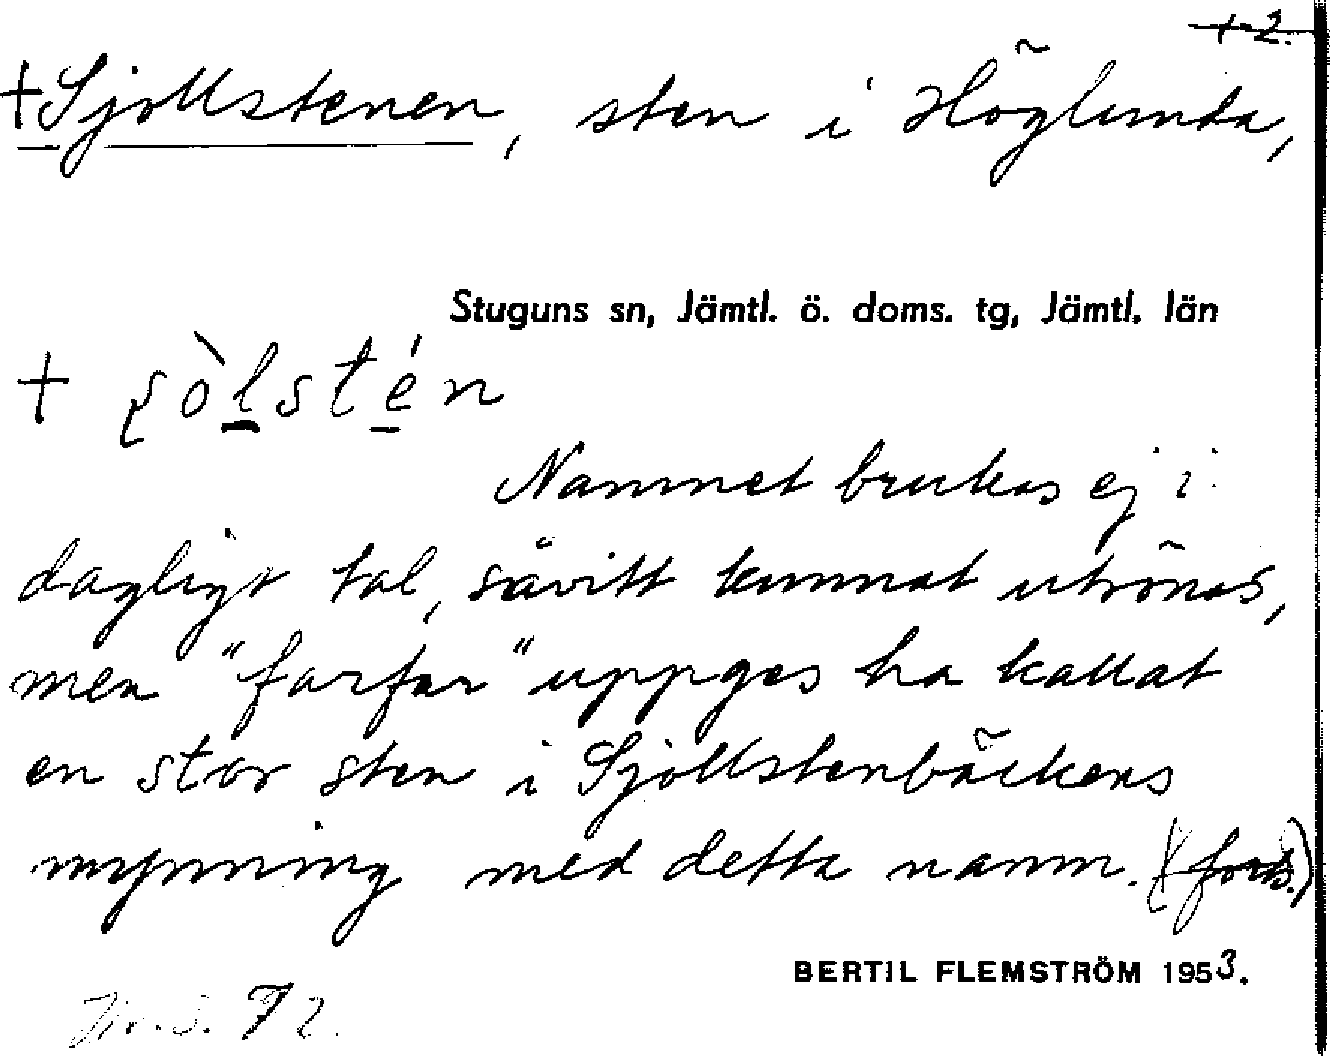 +Sjollstenen, sten i Höglunda,
Stuguns sn, Jämtl. ö. doms. tg, Jämtl. län
Namnet brukas ej i
dagligt tal, såvitt kunnat utrönas,
men "farfar" uppges ha kallat
en stor sten i Sjollstenbäckens
mynning med detta namn.
BERTIL FLEMSTRÖM 1953.